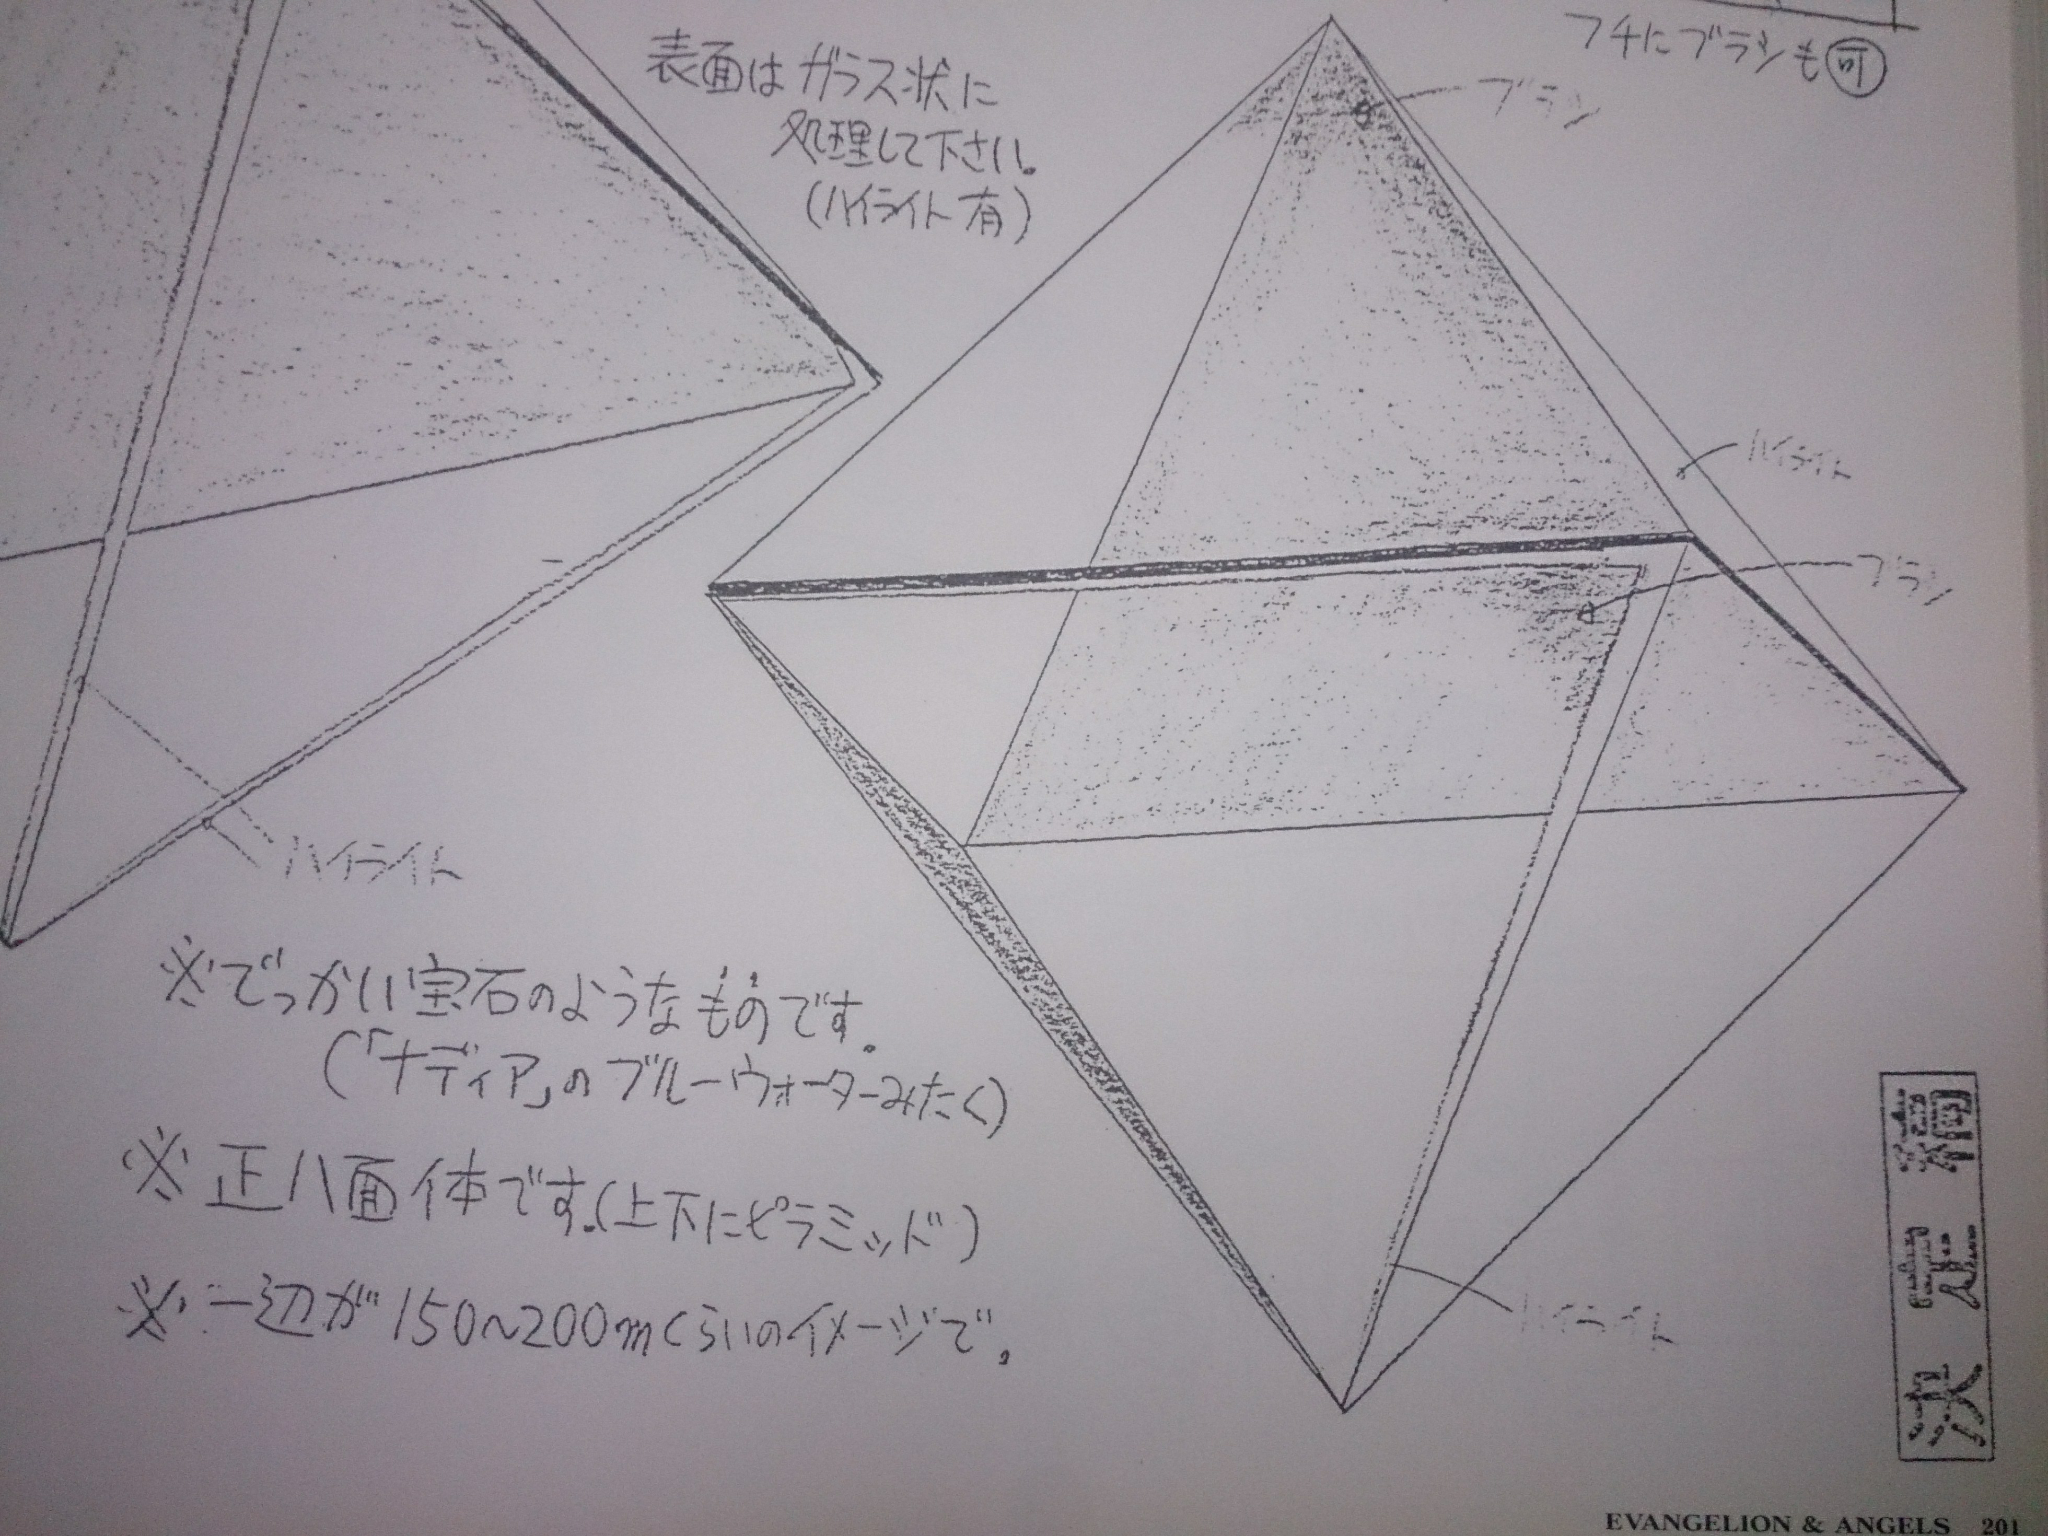 フチにブラシも可
表面はガラス状に
処理して下さい。
(ハイライト有)
ブラシ
ハイライト
ブラシ
ハイライト
※でっかい宝石のようなものです。
(「ナディア」のブルーウォーターみたく)
※正八面体です。(上下にピラミッド)
※一辺が150~200mくらいのイメージで。
ハイライト
EVANGELION & ANGELS 201